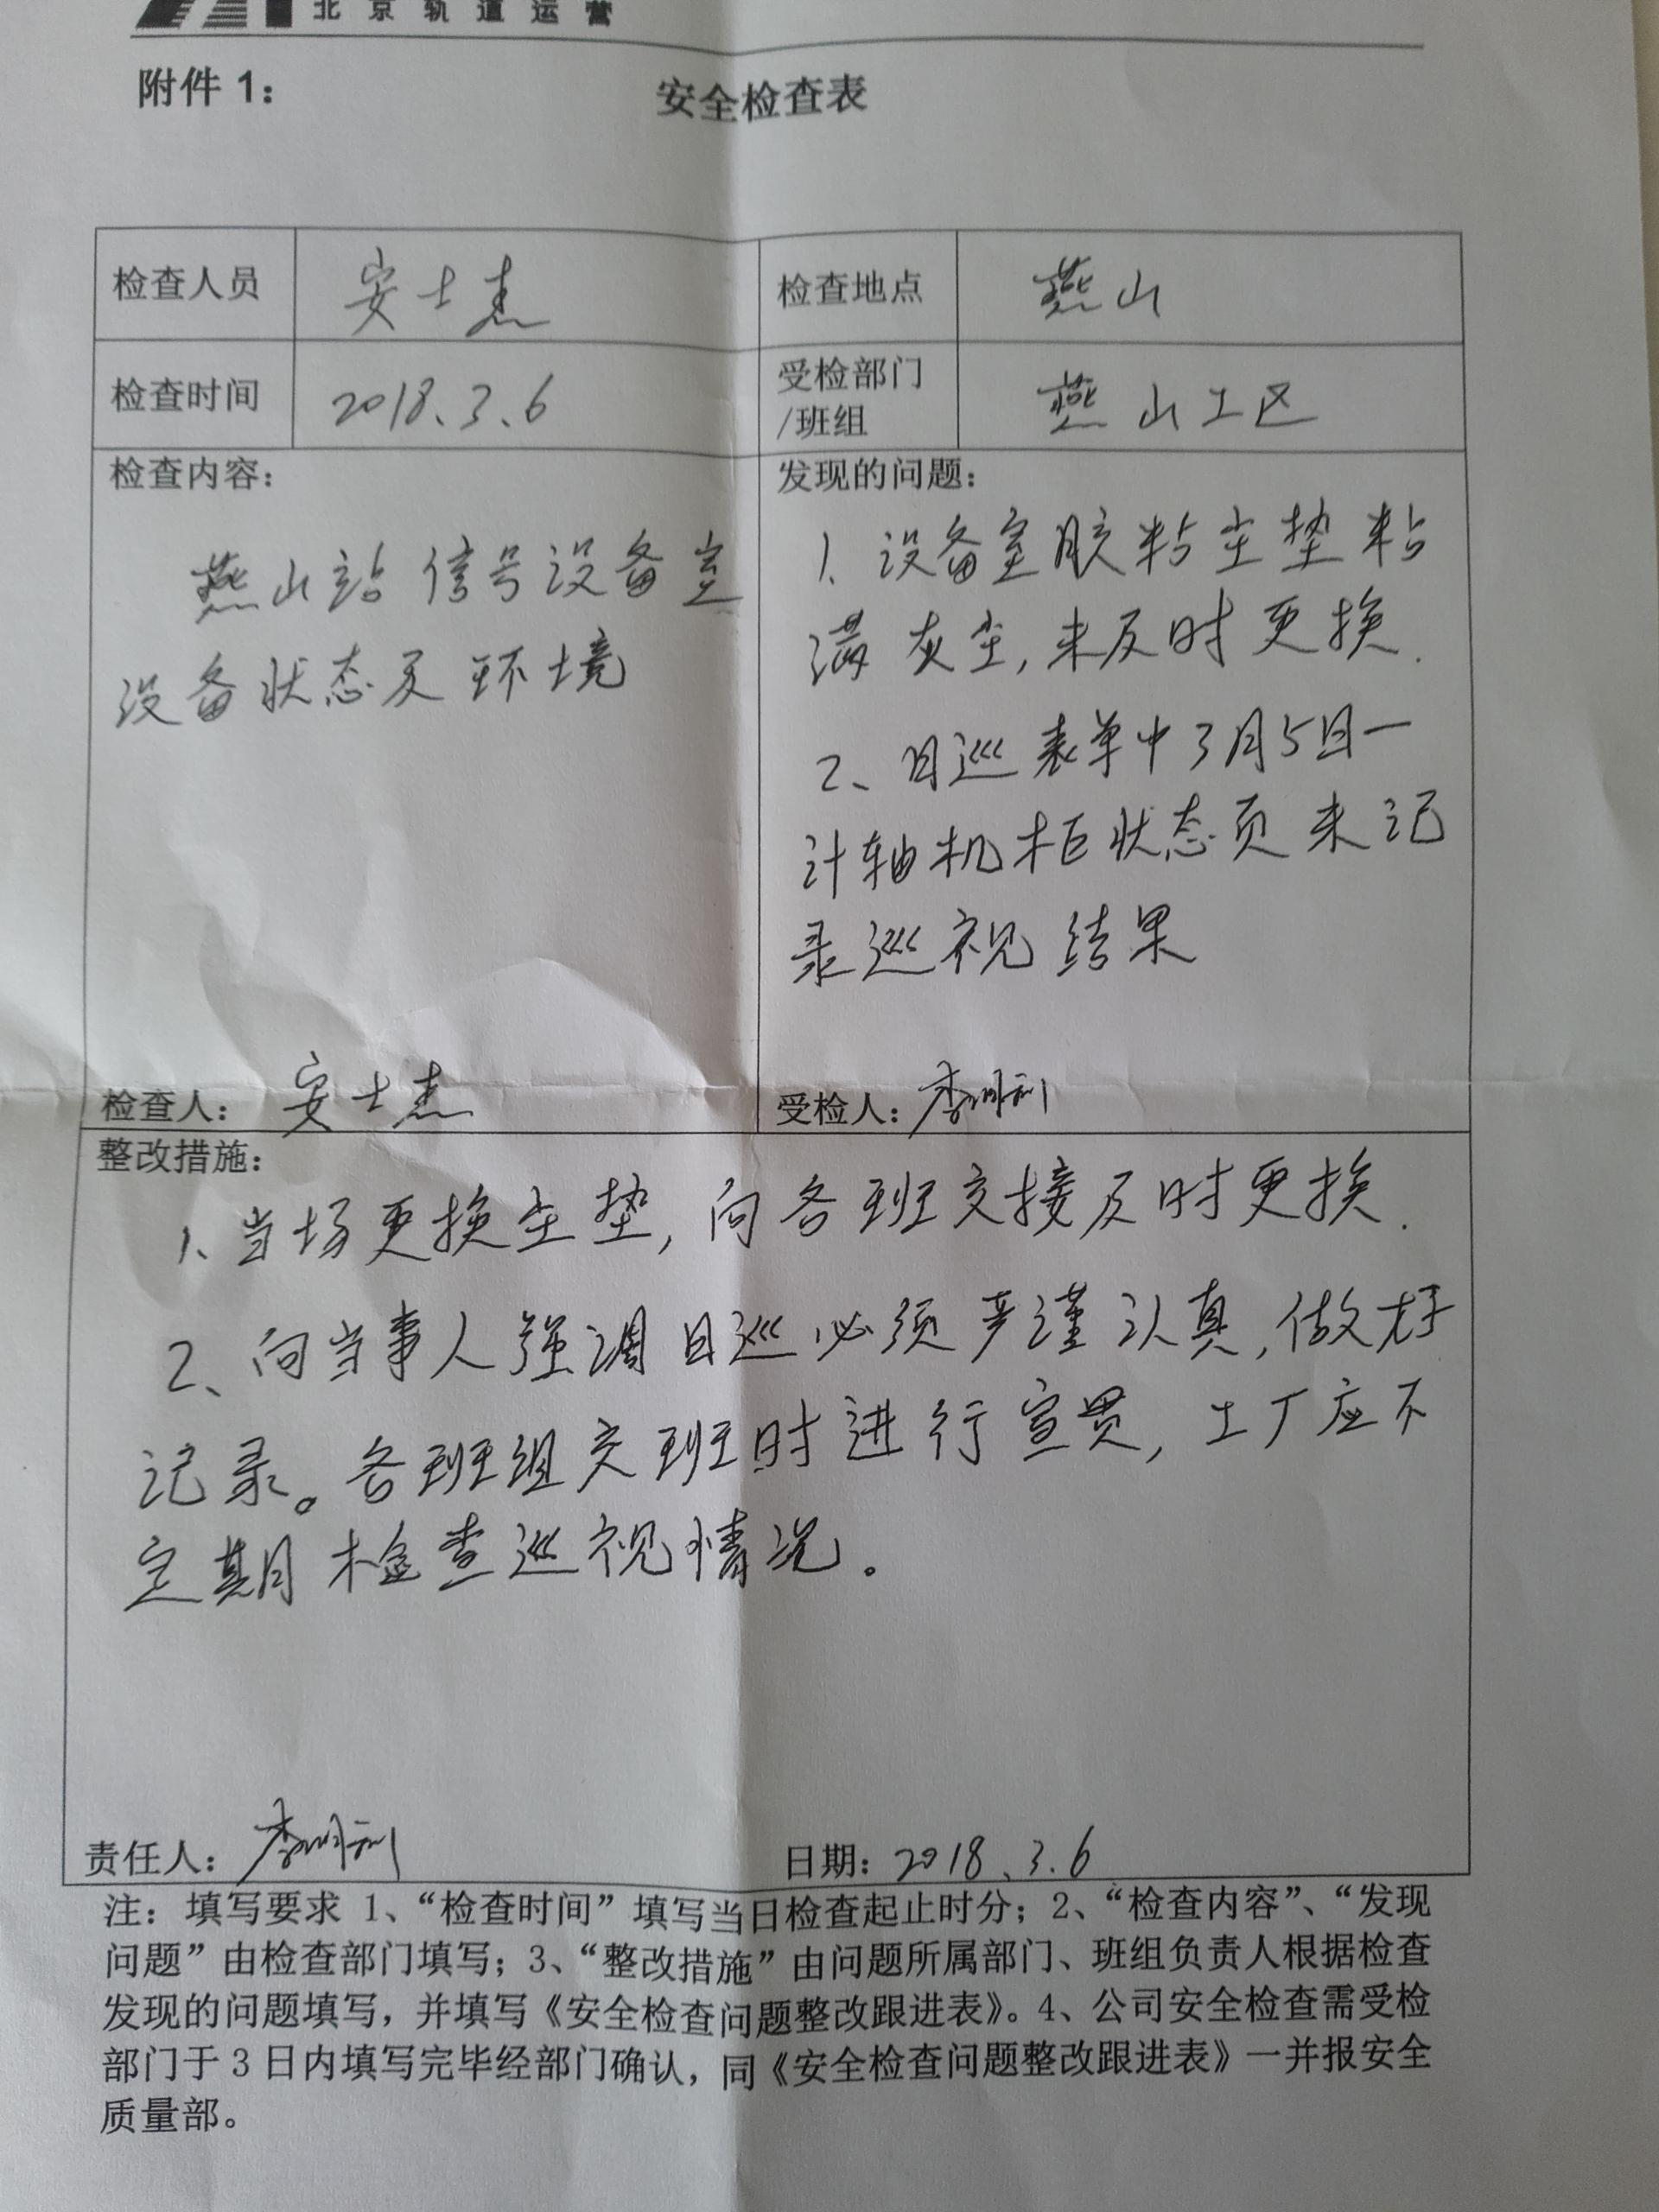 北京轨道运营
附件1：
安全检查表
检查人员 安士杰 检查地点 燕山
检查时间 2018.3.6 受检部门/班组 燕山工区
检查内容：
燕山站信号设备室
设备状态及环境
检查人：安士杰
发现的问题：
1、设备室胶粘尘垫粘
满灰尘，未及时更换.
2、日巡表单中3月5日一
计轴机柜状态页未记
录巡视结果
受检人：李明利
整改措施：
1、当场更换尘垫，向各班交接及时更换.
2、向当事人强调日巡必须严谨认真，做好
记录。各班组交班时进行宣贯，工厂应不
定期检查巡视情况。
责任人：李明利
日期：2018.3.6
注：填写要求 1、“检查时间”填写当日检查起止时分；2、“检查内容”、“发现
问题”由检查部门填写；3、“整改措施”由问题所属部门、班组负责人根据检查
发现的问题填写，并填写《安全检查问题整改跟进表》。4、公司安全检查需受检
部门于3日内填写完毕经部门确认，同《安全检查问题整改跟进表》一并报安全
质量部。